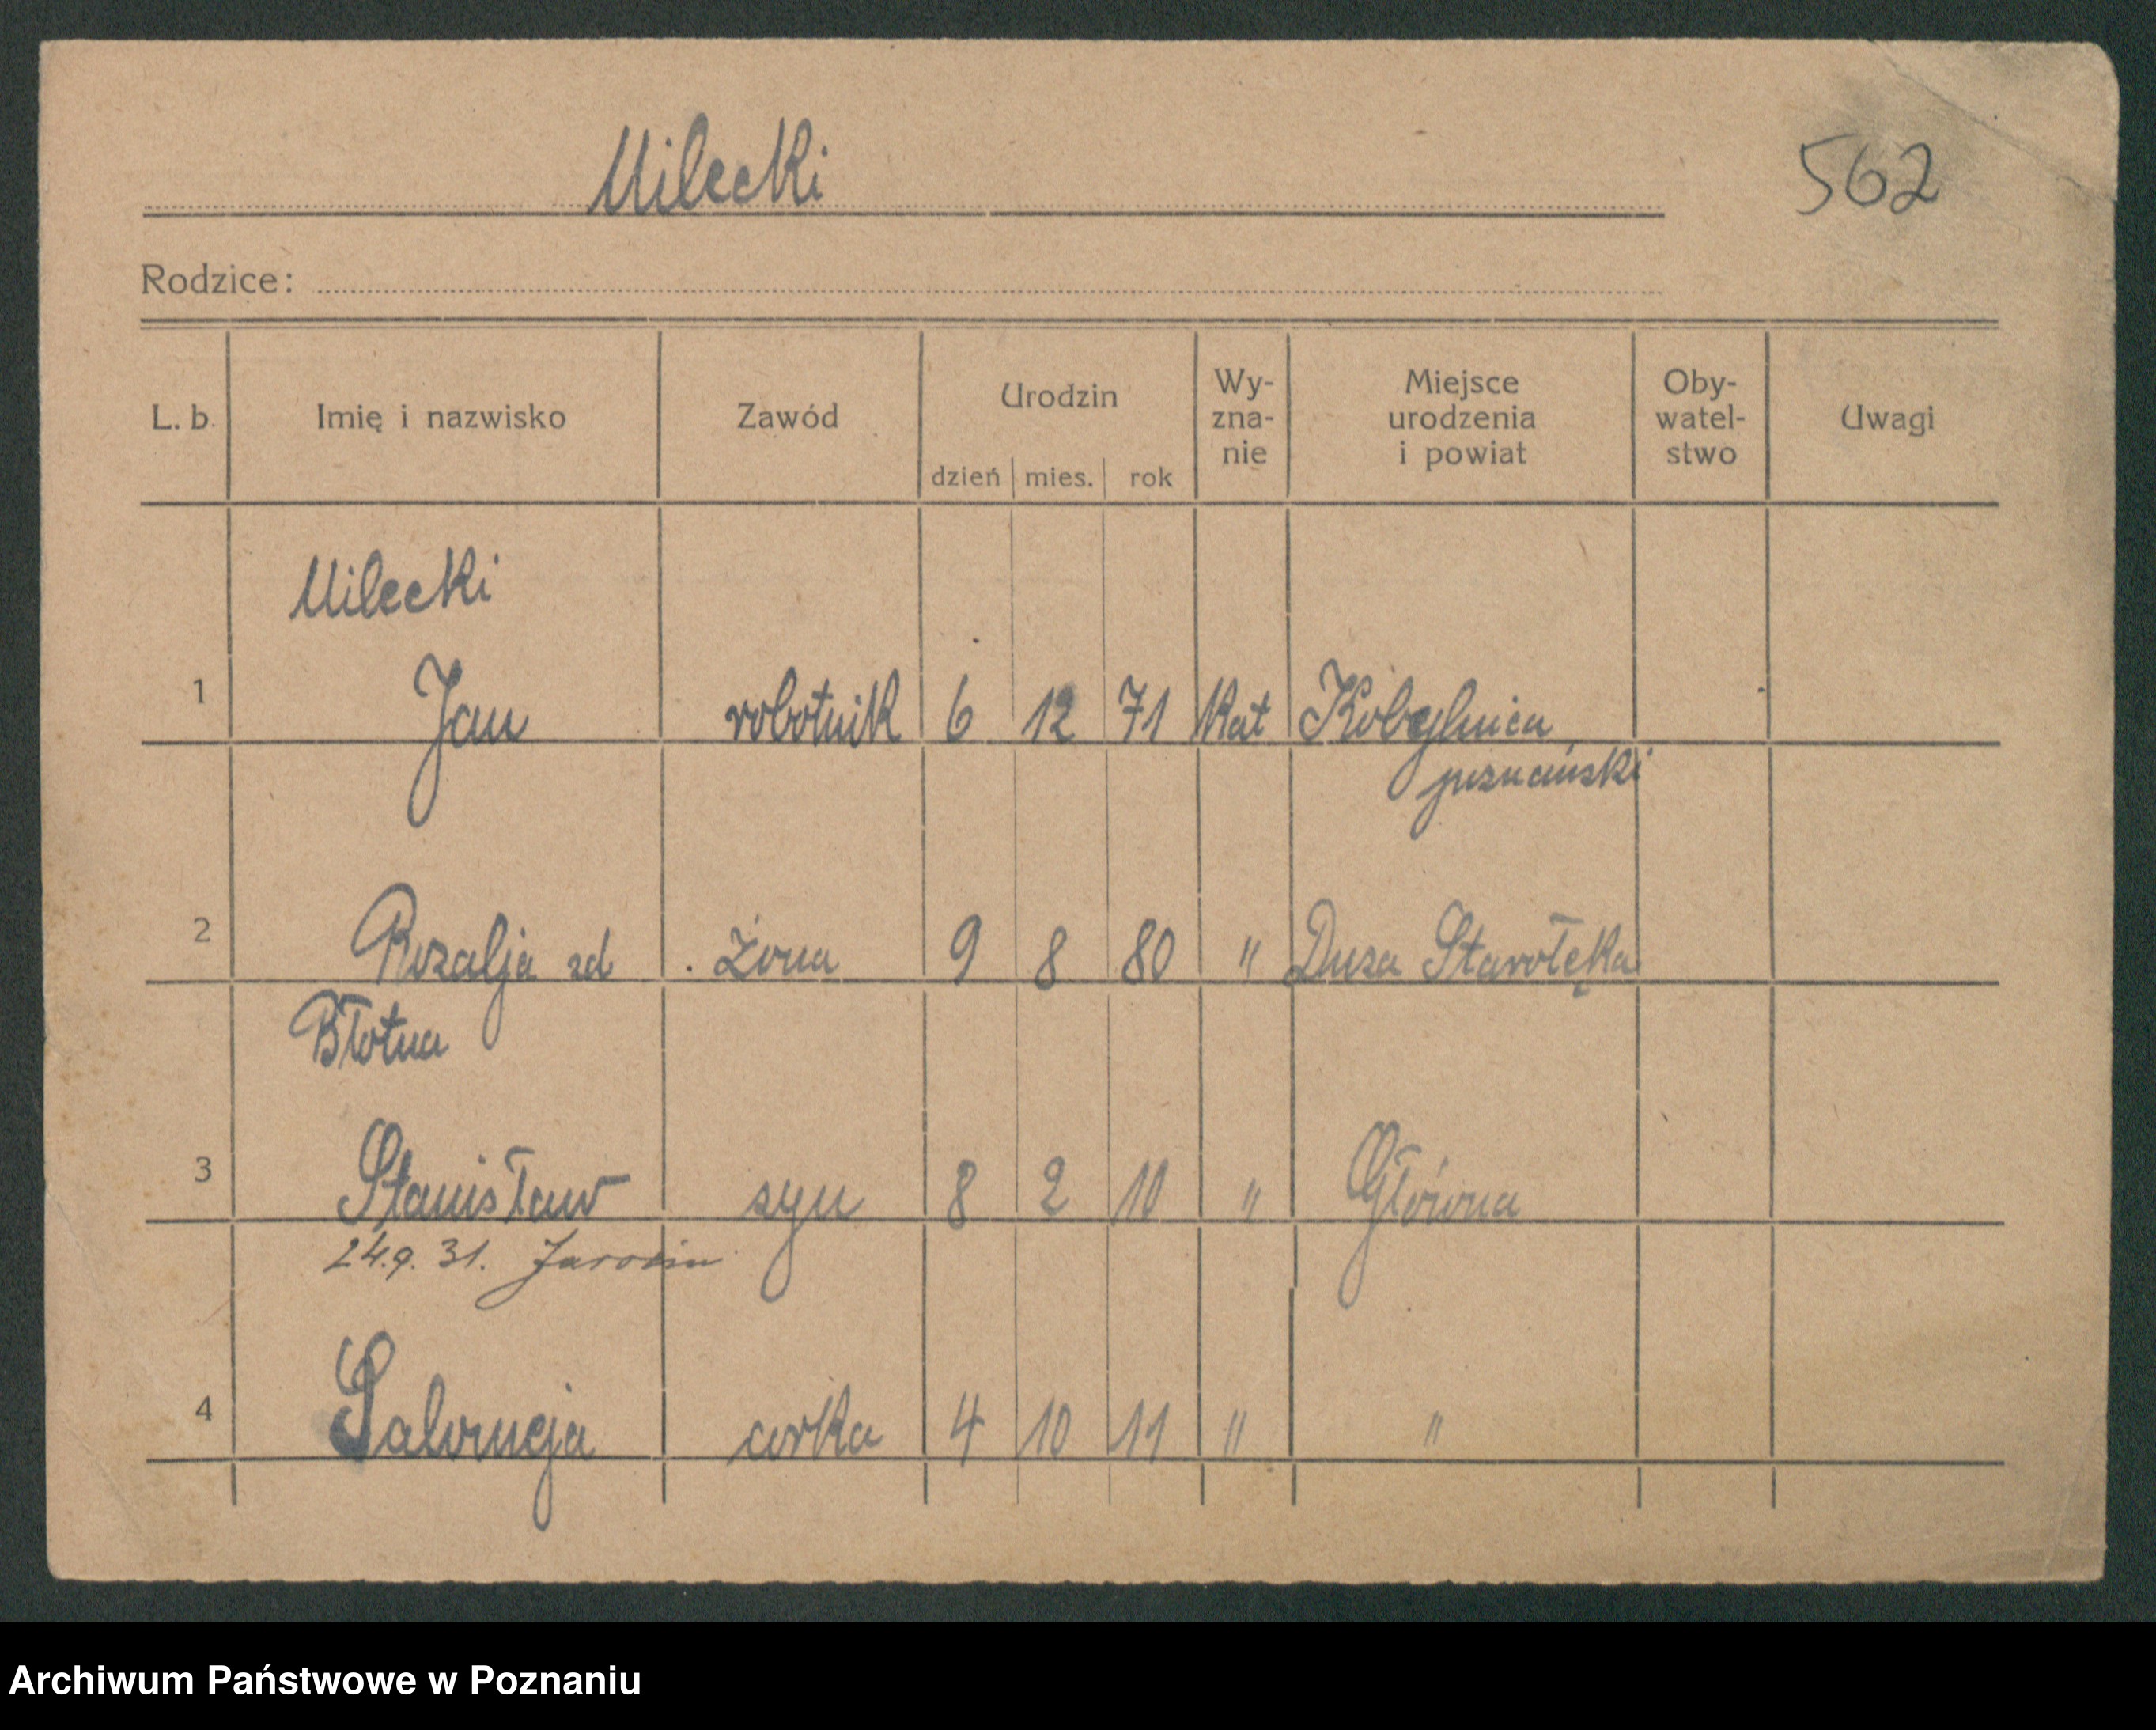 Milecki
562
Rodzice:
L. b. Imię i nazwisko Zawód Urodzin dzień mies. rok Wy-zna-nie Miejsce urodzenia i powiat Oby-watel-stwo Uwagi
Milecki
1 Jan robotnik 6 12 71 Kat Kobylnica
poznański
2 Rozalja zd żona 9 8 80 " Duza Starołęka
Błotna
3 Stanisław syn 8 2 10 " Główna
24.9.31. Jarocin
4 Salomeja corka 4 10 11 " "
Archiwum Państwowe w Poznaniu